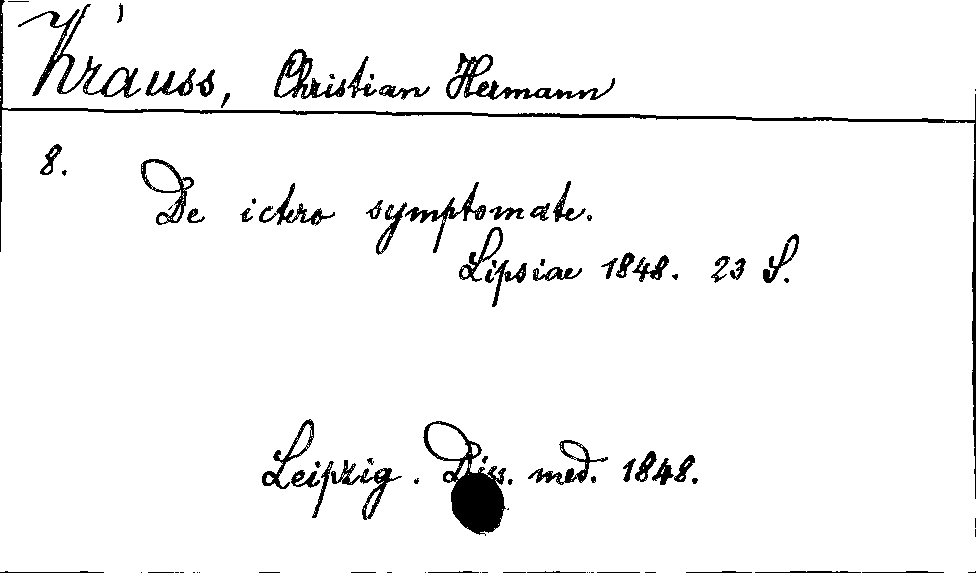 Krauss, Christian Hermann
8. De ictero symptomate.
Lipsiae 1848. 23 S.
Leipzig. Diss. med. 1848.